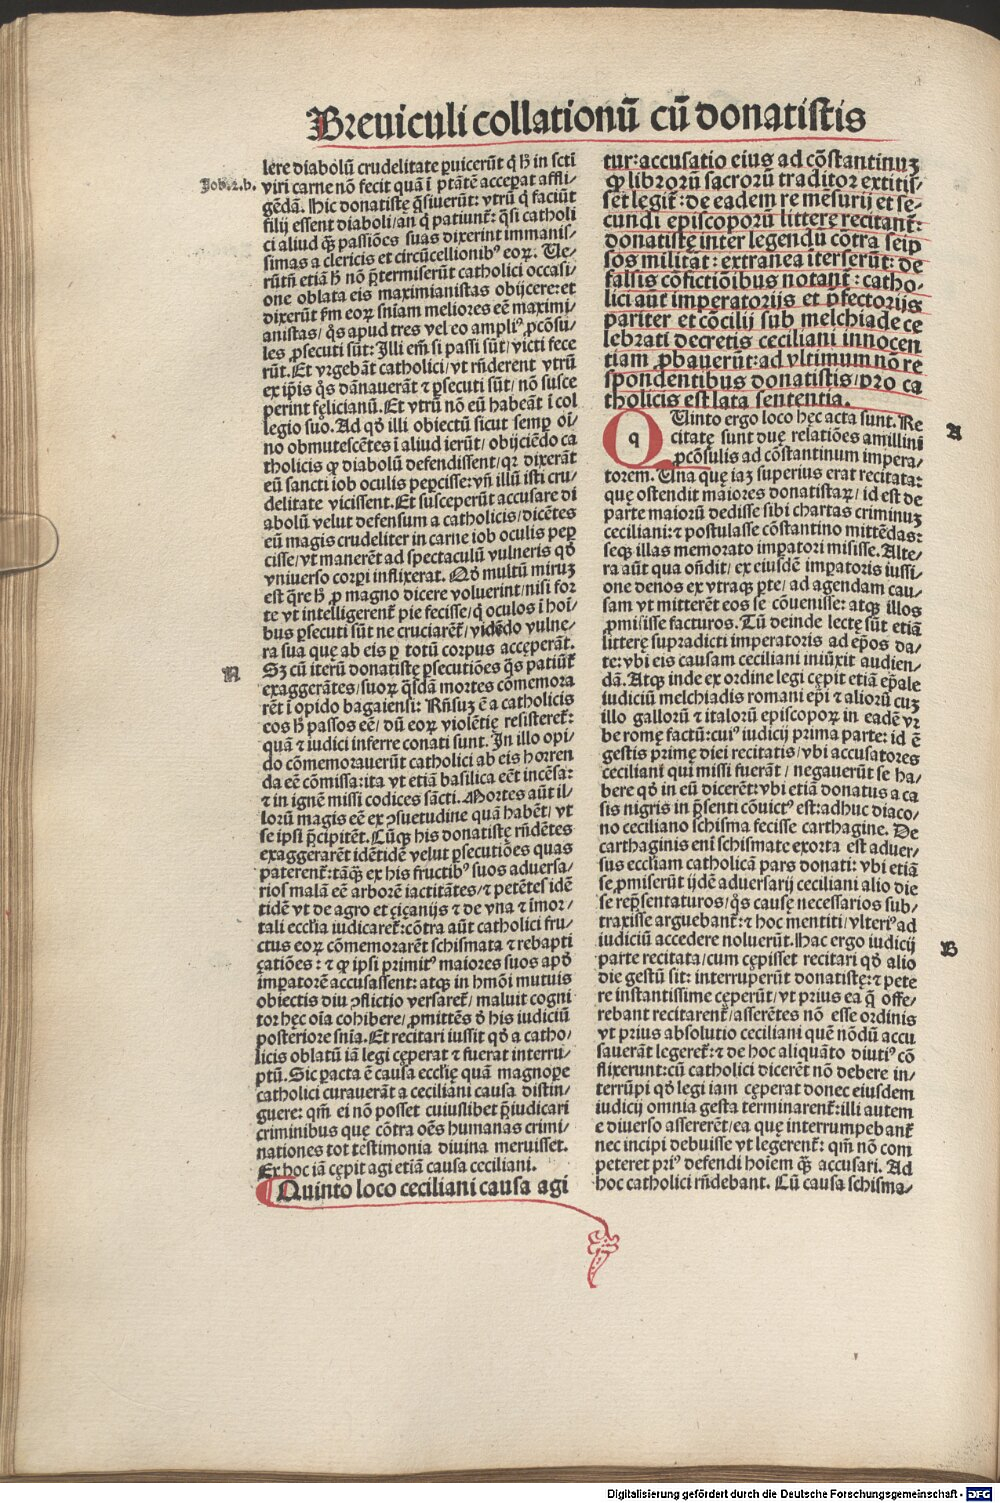 Breuiculi collationū cū donatistis
lere diabolū crudelitate ꝑuicerūt q̄ h̄ in scti
Job.2.b.
viri carne nō fecit quā ī ptātē acceꝑat affli-
gēdā. Hic donatistę q̄siuerūt: vtrū q̄ faciūt
filij essent diaboli/ an q̄ patiunt̄: q̄si catholi
ci aliud q̄ꝫ passiōes suas dixerint immanis/
simas a clericis et circūcellionibꝰ eoꝝ. Ue-
rūtn̄ etiā h̄ nō p̄termiserūt catholici occasi/
one oblata eis maximianistas obijcere: et
dixerūt km̄ eoꝝ sn̄iam meliores eē maximi/
anistas/ q̄s apud tres vel eo ampliꝰ ꝓcōsu/
les ꝑsecuti sūt: Illi em̄ si passi sūt/ victi fece
rūt. Et vrgebāt catholici/ vt rn̄derent vtrū
ex ip̄is q̄s dānauerāt ⁊ ꝑsecuti sūt/ nō susce
perint fęlicianū. Et vtrū nō eū habeāt ī col
legio suo. Ad qd̄ illi obiectū sicut semꝑ oī/
no obmutescētes ī aliud ierūt/ obijciēdo ca
tholicis ꝙ diabolū defendissent/ qꝛ dixerāt
eū sancti iob oculis peꝑcisse: vn̄ illū isti cru/
delitate vicissent. Et susceperūt accusare di
abolū velut defensum a catholicis/ dicētes
eū magis crudeliter in carne iob oculis peꝑ
cisse/ vt manerēt ad spectaculū vulneris qd̄
vniuerso corꝑi inflixerat. Qd̄ multū miruꝫ
est q̄re h̄ ꝓ magno dicere voluerint/ nisi for
te vt intelligerent̄ pie fecisse/ q̄ oculos ī hoī/
bus ꝑsecuti sūt ne cruciarēt̄/ vidēdo vulne/
ra sua quę ab eis ꝑ totū corpus accęperāt.
N
Sꝫ cū iterū donatistę ꝑsecutiōes q̄s patiūt̄
exaggerātes/ suoꝝ q̄sdā mortes cōmemora
rēt ī opido bagaiensi: Rn̄suꝫ ē a catholicis
eos h̄ passos eē/ dū eoꝝ violētię resisteret̄:
quā ⁊ iudici inferre conati sunt. In illo opi/
do cōmemorauerūt catholici ab eis horren
da eē cōmissa: ita vt etiā basilica eēt incēsa:
⁊ in ignē missi codices sācti. Mortes aūt il/
lorū magis eē ex ꝯsuetudine quā habēt/ vt
se ipsi p̄cipitēt. Cūqꝫ his donatistę rn̄dētes
exaggerarēt idētidē velut ꝑsecutiōes quas
paterent̄: tāq̄ꝫ ex his fructibꝰ suos aduersa/
rios malā eē arborē iactitātes/ ⁊ petētes idē
tidē vt de agro et çiçanijs ⁊ de vna ⁊ īmor/
tali ecclīa iudicaret̄: cōtra aūt catholici fru/
ctus eoꝝ cōmemorarēt schismata ⁊ rebapti
çatiōes: ⁊ ꝙ ipsi primitꝰ maiores suos apd̄
imꝑatorē accusassent: atqꝫ in hmōi mutuis
obiectis diu ꝯflictio versaret̄/ maluit cogni
tor hęc oīa cohibere/ ꝓmittēs d̄ his iudiciū
posteriore sn̄ia. Et recitari iussit qd̄ a catho/
licis oblatū iā legi cęperat ⁊ fuerat interru/
ptū. Sic ꝑacta ē causa ecclīę quā magnope
catholici curauerāt a ceciliani causa distin/
guere: qm̄ ei nō posset cuiuslibet p̄iudicari
criminibus quę cōtra oēs humanas crimi/
nationes tot testimonia diuina meruisset.
Ex hoc iā cępit agi etiā causa ceciliani.
Quinto loco ceciliani causa agi
tur: accusatio eius ad cōstantinuꝫ
ꝙ librorū sacrorū traditor extitis/
set legit̄: de eadem re mesurij et se/
cundi episcoporū litterę recitant̄:
donatistę inter legendū cōtra seip
sos militāt: extranea īterserūt: de
falsis cōfictiōibus notant̄: catho/
lici aūt imperatorijs et p̄fectorijs
pariter et cōcilij sub melchiade ce
lebrati decretis ceciliani innocen
tiam ꝓbauerūt: ad vltimum nō re
spondentibus donatistis/ pro ca
tholicis est lata sententia.
A
QUinto ergo loco hęc acta sunt. Re
q
citatę sunt duę relatiōes amillini
ꝓcōsulis ad cōstantinum impera/
torem. Una quę iaꝫ superius erat recitata:
quę ostendit maiores donatistaꝝ/ id est de
parte maiorū dedisse sibi chartas criminuꝫ
ceciliani: ⁊ postulasse cōstantino mittēdas:
seqꝫ illas memorato imꝑatori misisse. Alte/
ra aūt qua on̄dit/ ex eiusdē imꝑatoris iussi/
one denos ex vtraqꝫ ꝑte/ ad agendam cau/
sam vt mitterēt eos se cōuenisse: atqꝫ illos
ꝓmisisse facturos. Tū deinde lectę sūt etiā
litterę supradicti imperatoris ad ep̄os da/
te: vbi eis causam ceciliani iniūxit audien/
dā. Atqꝫ inde ex ordine legi cępit etiā ep̄ale
iudiciū melchiadis romani ep̄i ⁊ aliorū cuꝫ
illo gallorū ⁊ italorū episcopoꝝ in eadē vr
be rome factū: cuiꝰ iudicij prima parte: id ē
gestis primę diei recitatis/ vbi accusatores
ceciliani qui missi fuerāt/ negauerūt se ha/
bere qd̄ in eū dicerēt: vbi etiā donatus a ca
sis nigris in p̄senti cōuictꝰ est: adhuc diaco/
no ceciliano schisma fecisse carthagine. De
carthaginis enī schismate exorta est aduer/
sus eccl̄iam catholicā pars donati: vbi etiā
se ꝓmiserūt ijdē aduersarij ceciliani alio die
se rep̄sentaturos/ q̄s causę necessarios sub/
traxisse arguebant̄: ⁊ hoc mentiti/ vlteriꝰ ad
iudiciū accedere noluerūt. Hac ergo iudicij
B
parte recitata/ cum cępisset recitari qd̄ alio
die gestū sit: interruperūt donatistę: ⁊ pete
re instantissime cęperūt/ vt prius ea q̄ offe/
rebant recitarent̄/ asserētes nō esse ordinis
vt prius absolutio ceciliani quē nōdū accu
sauerāt legeret̄: ⁊ de hoc aliquāto diutiꝰ cō
flixerunt: cū catholici dicerēt nō debere in/
terrūpi qd̄ legi iam cęperat donec eiusdem
iudicij omnia gesta terminarent̄: illi autem
e diuerso assererēt/ ea quę interrumpebant̄
nec incipi debuisse vt legerent̄: qm̄ nō com
peteret priꝰ defendi hoīem q̄ꝫ accusari. Ad
hoc catholici rn̄debant. Cū causa schisma/
Digitalisierung gefördert durch die Deutsche Forschungsgemeinschaft - DFG